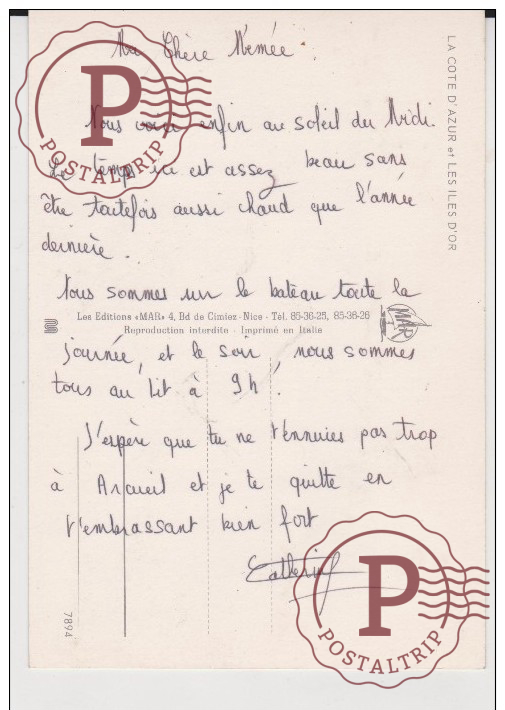 Ma Chère Mémée.
Nous voici enfin au soleil du Midi.
Le temps ici est assez beau sans
être toutefois aussi chaud que l'année
dernière.
Nous sommes sur le bateau toute la
Les Editions «MAR» 4, Bd de Cimiez - Nice - Tél. 85-36-25, 85-36-26
Reproduction interdite - Imprimé en Italie
MAR
journée, et le soir nous sommes
tous au lit à 9h!
J'espère que tu ne t'ennuies pas trop
à Arcueil et je te quitte en
t'embrassant bien fort
Catherine
LA COTE D'AZUR et LES ILES D'OR
7894
P
POSTALTRIP
P
POSTALTRIP